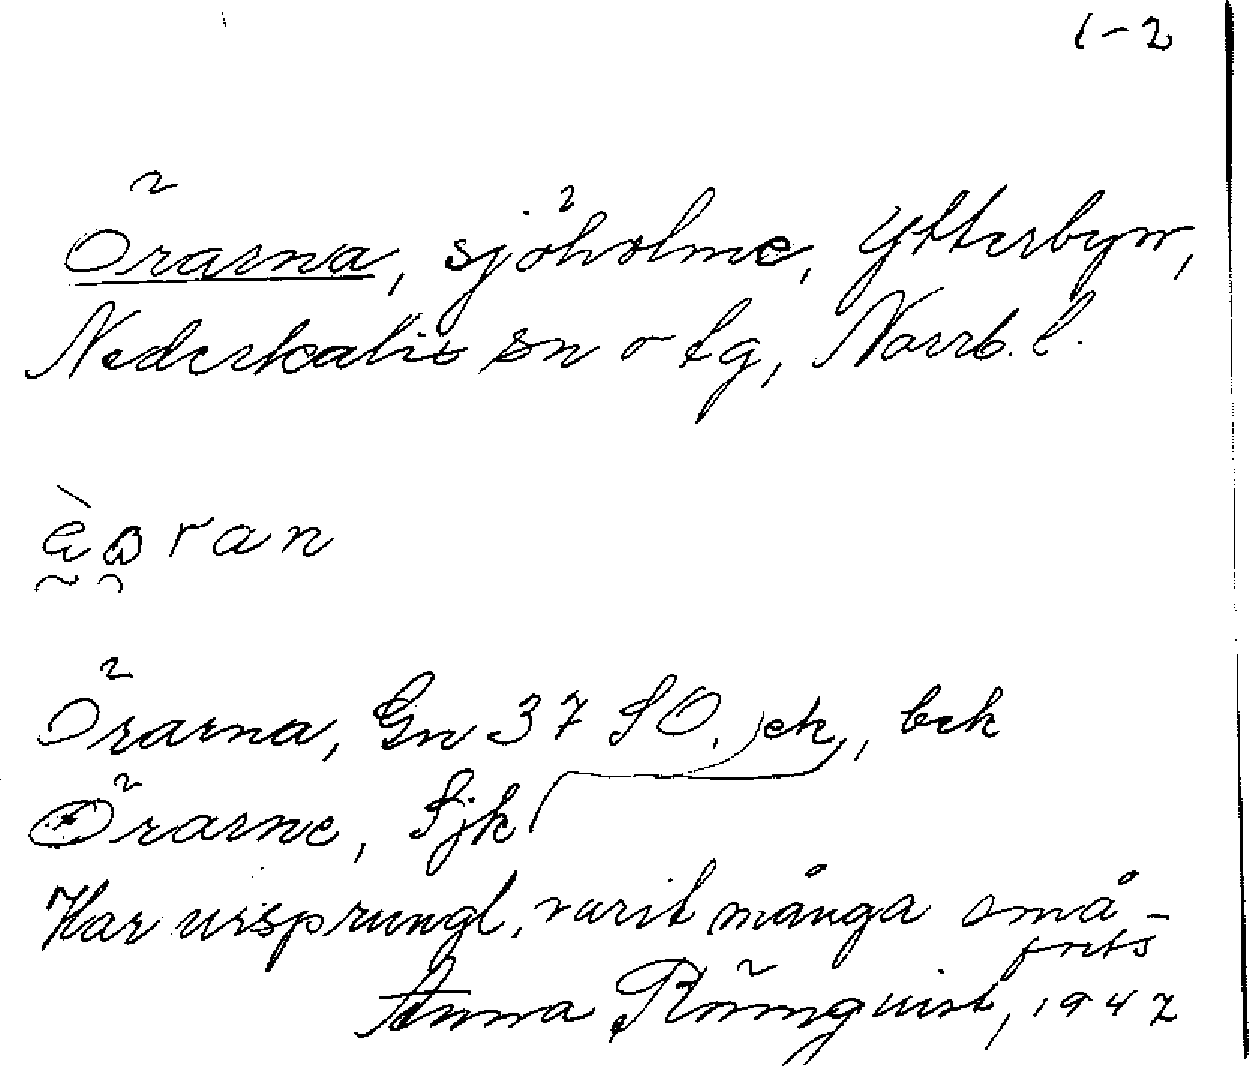 1-2
Örarna, sjöholme, Ytterbyn,
Nederkalix sn o tg, Norrb. l.
Örarna, Gn 37 SO, ek, bek
Örarne, Sjk
Har ursprungl. varit många små-
forts
Anna Römquist, 1942